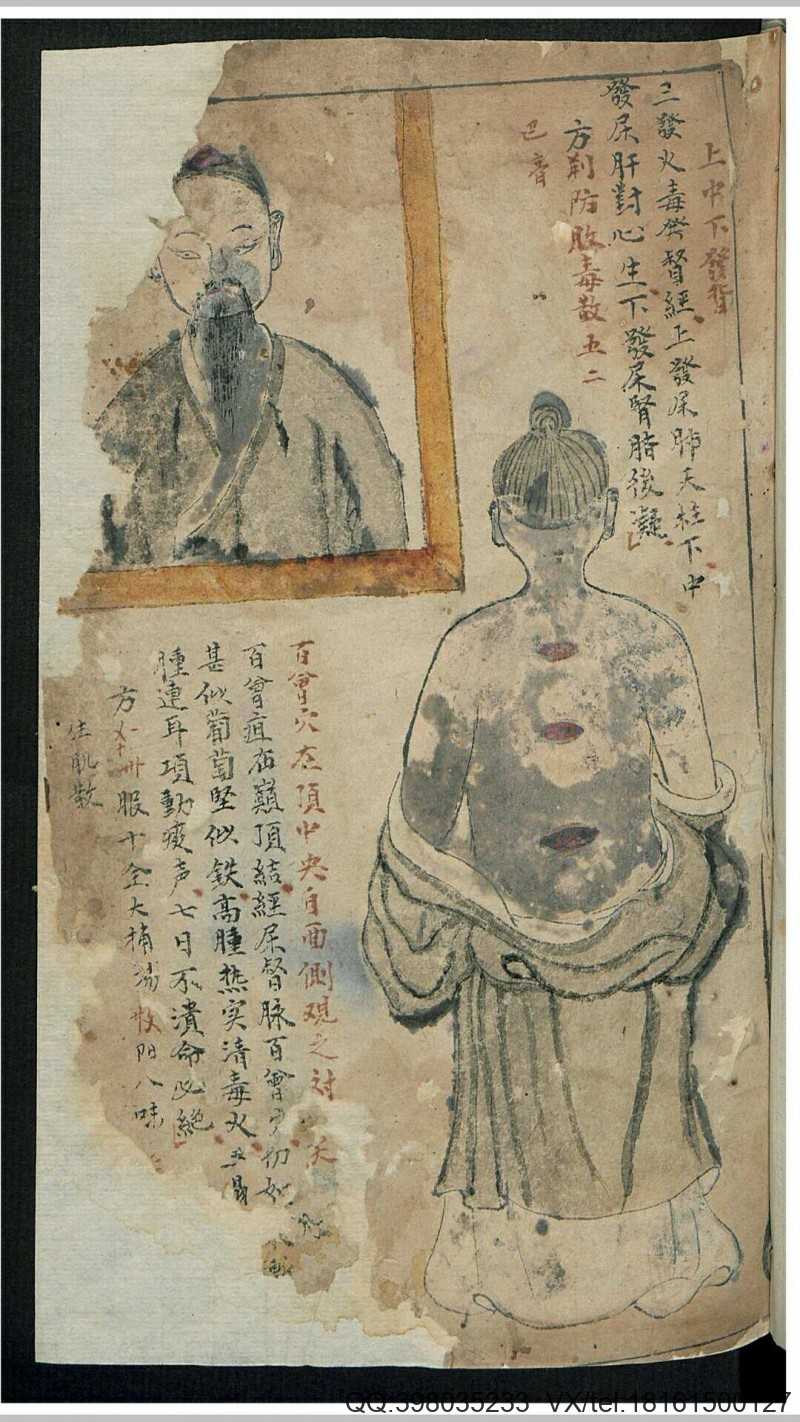 上中下發背
三發火毒發督經上發屎肺天柱下中
發屎肝對心生下發屎腎臍後凝
方荊防敗毒散五二
百會穴在頂中央自面側观之対
百會疽在巔頂結經屎督脉百會初如
甚似葡萄堅似鉄高腫热实清毒火
腫連耳項動痰声七日不潰命必絕
方 服十全大補湯 八味
生肌散
QQ:398035233 VX/tel:18161500127